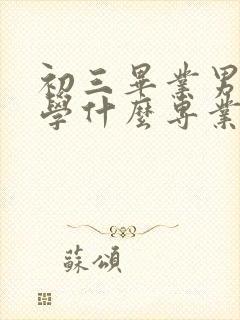 初三畢業男
學什麼專業
蘇頌